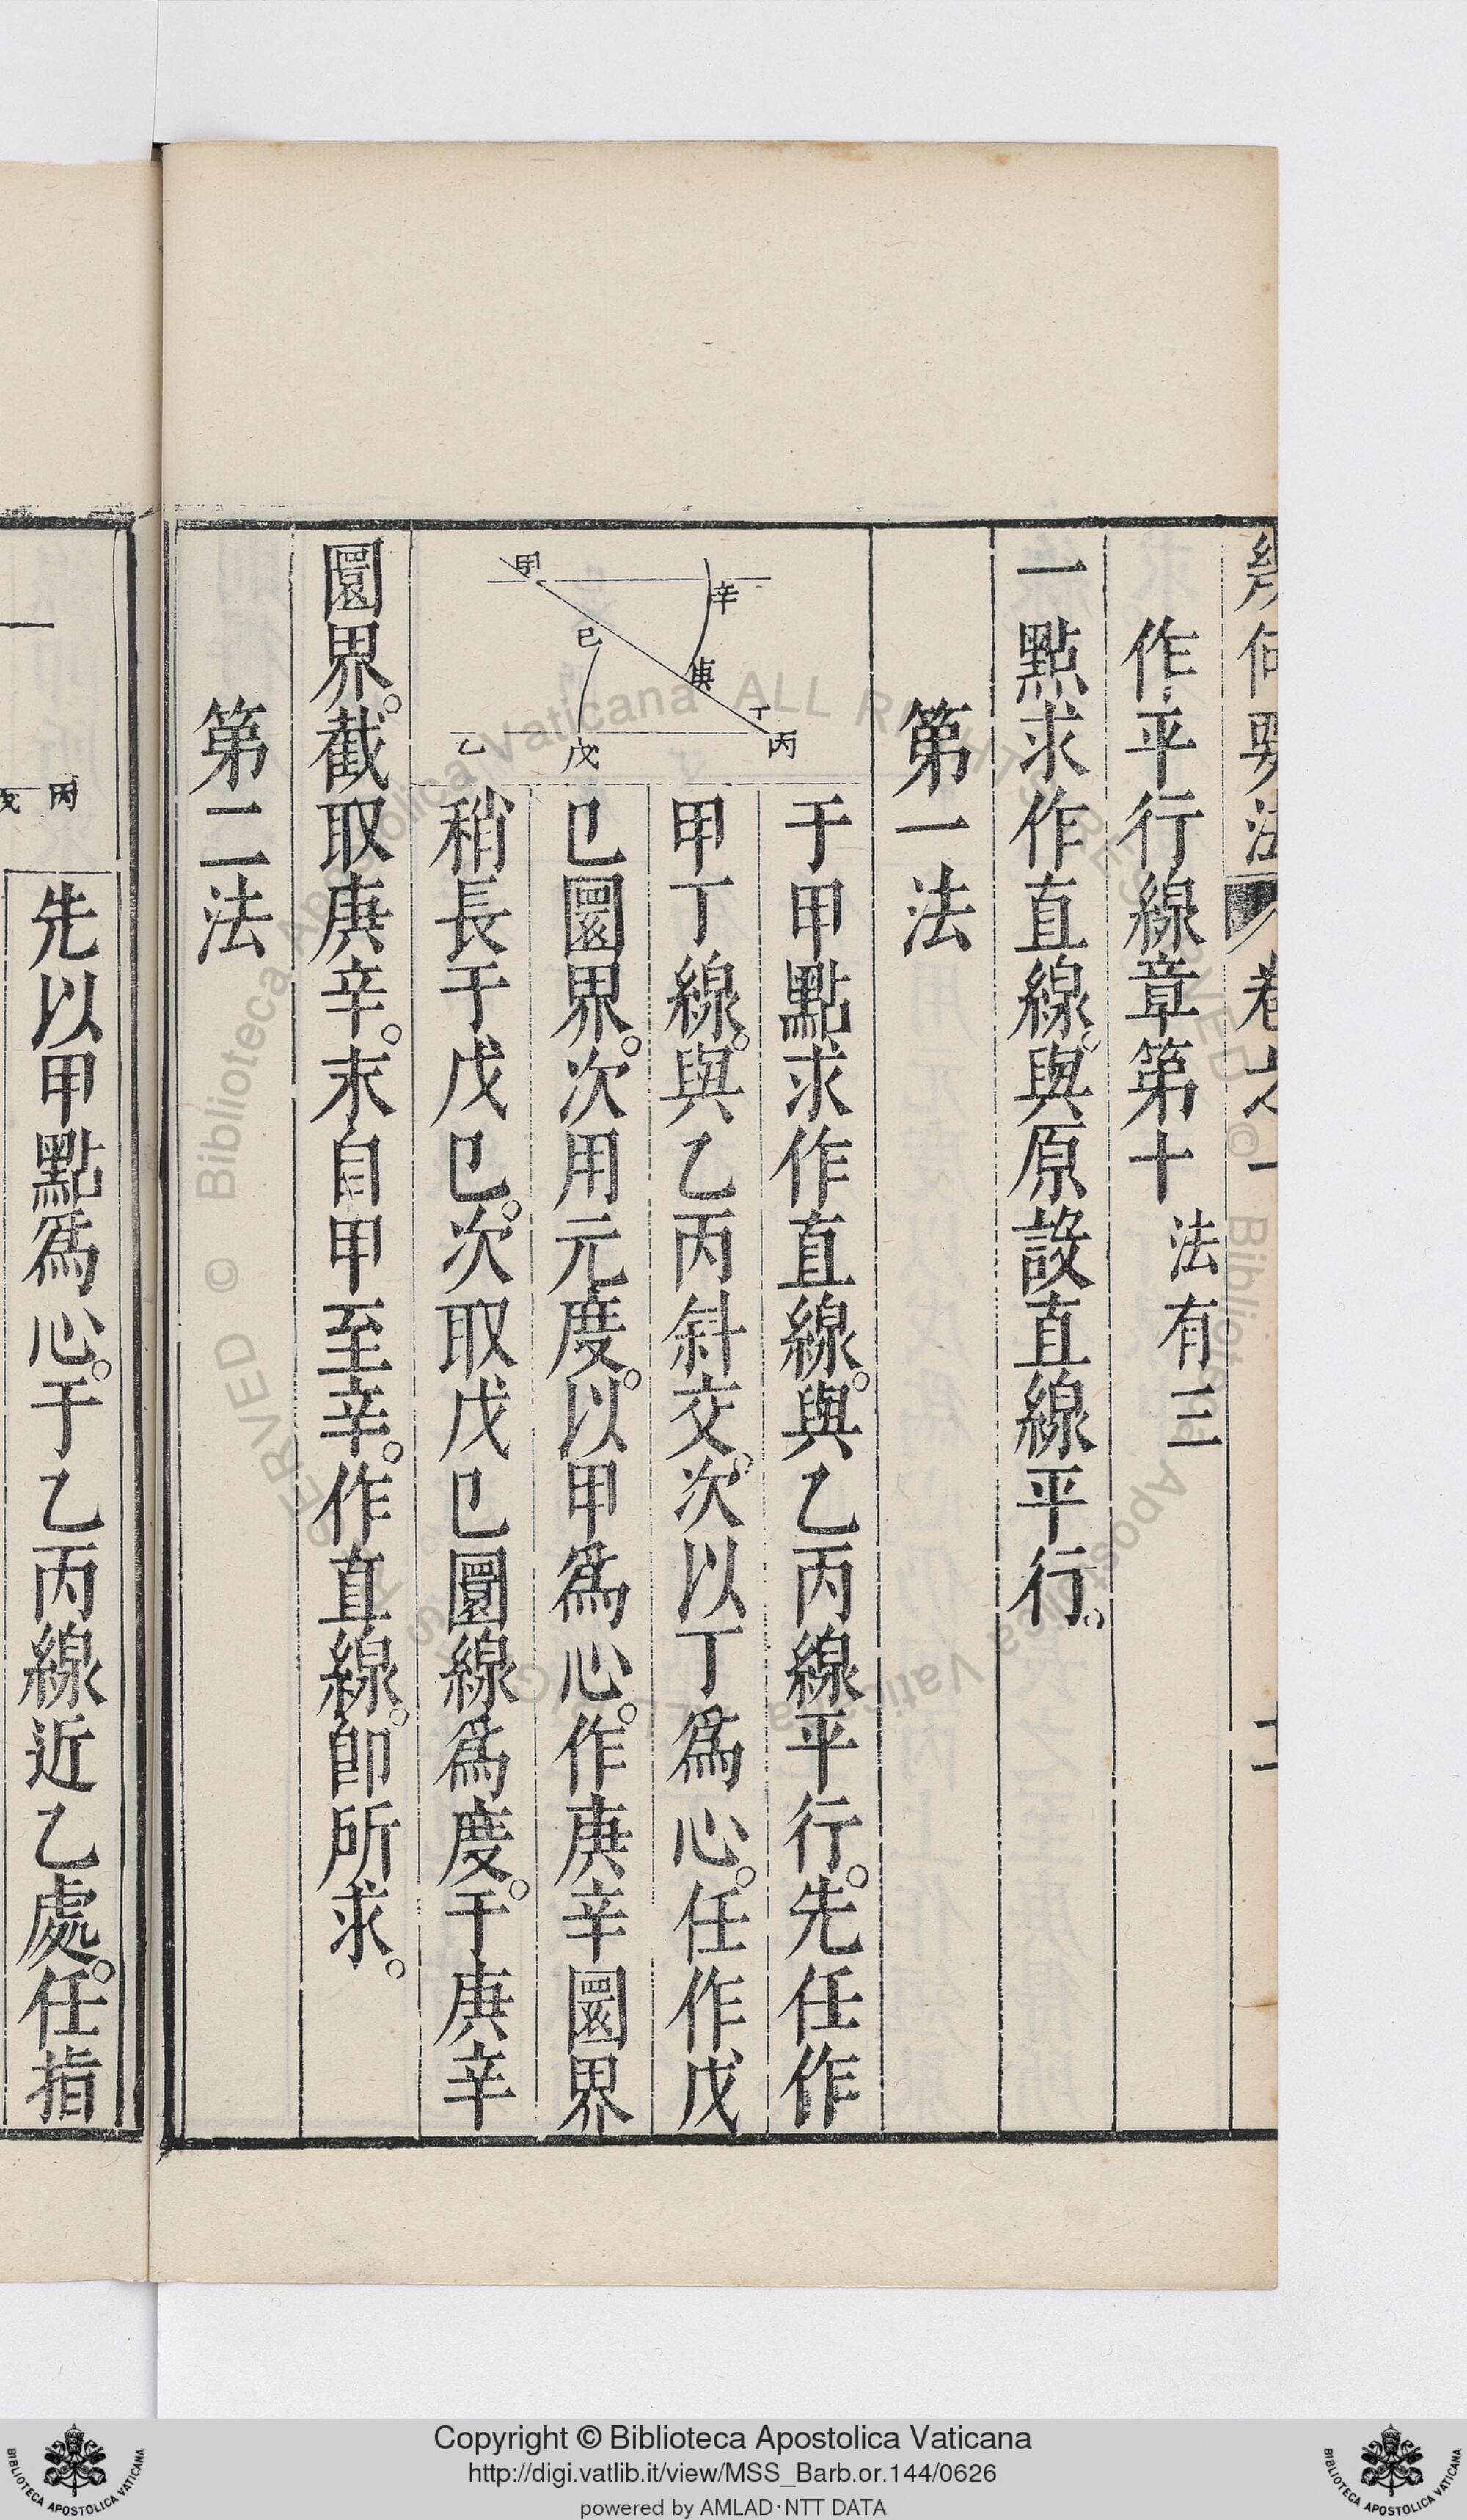 幾何要法 卷之一
作平行線章第十 法有三
一點求作直線。與原設直線平行。
第一法
甲 辛 己 庚 丁 乙 戊 丙
于甲點求作直線。與乙丙線平行。先任作
甲丁線。與乙丙斜交。次以丁為心。任作戊
巳圜界。次用元度。以甲為心。作庚辛圜界
稍長于戊巳。次取戊巳圜線為度。于庚辛
圜界。截取庚辛。末自甲至辛。作直線。即所求。
第二法
丙 戊
先以甲點為心。于乙丙線近乙處。任指
© Biblioteca Apostolica Vaticana ALL RIGHTS RESERVED
Copyright © Biblioteca Apostolica Vaticana
http://digi.vatlib.it/view/MSS_Barb.or.144/0626
powered by AMLAD·NTT DATA
BIBLIOTECA APOSTOLICA VATICANA
BIBLIOTECA APOSTOLICA VATICANA